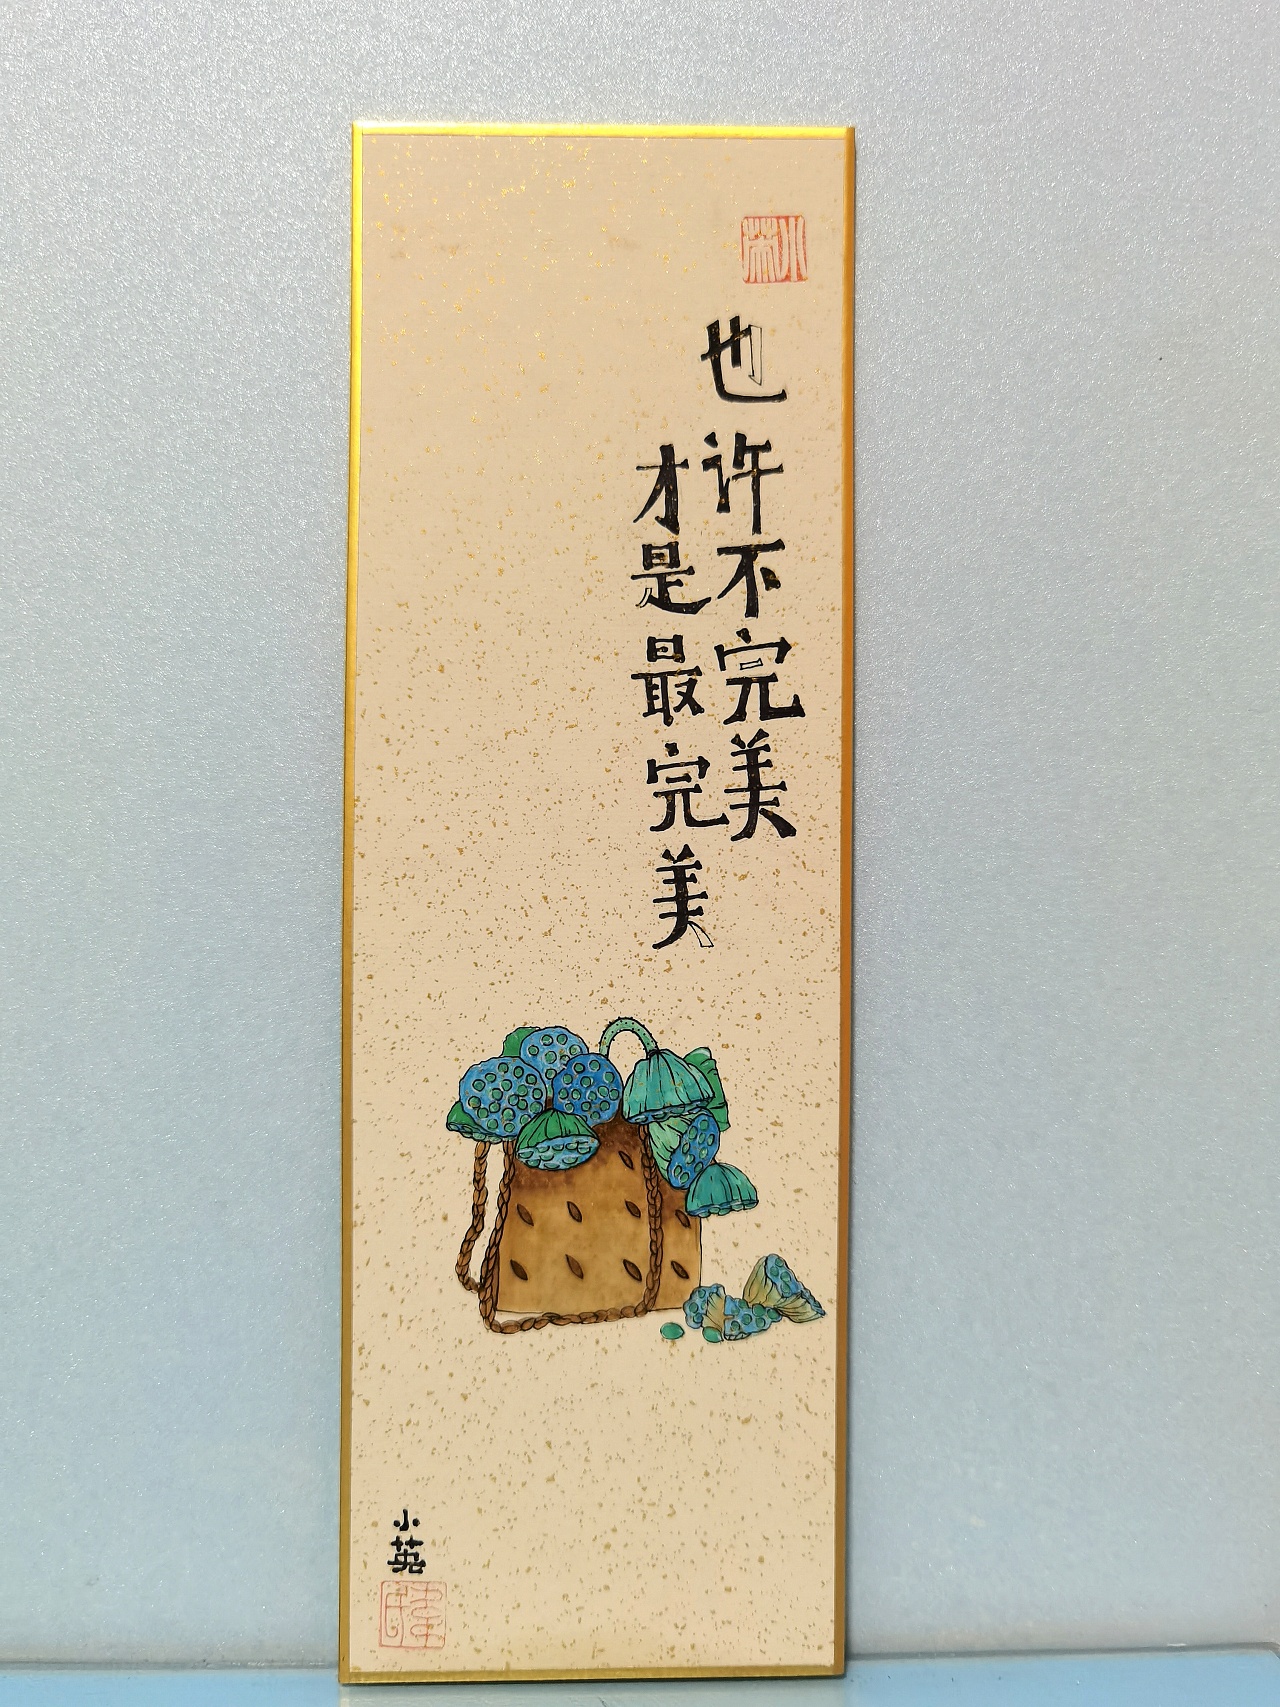 也许不完美
才是最完美
小英